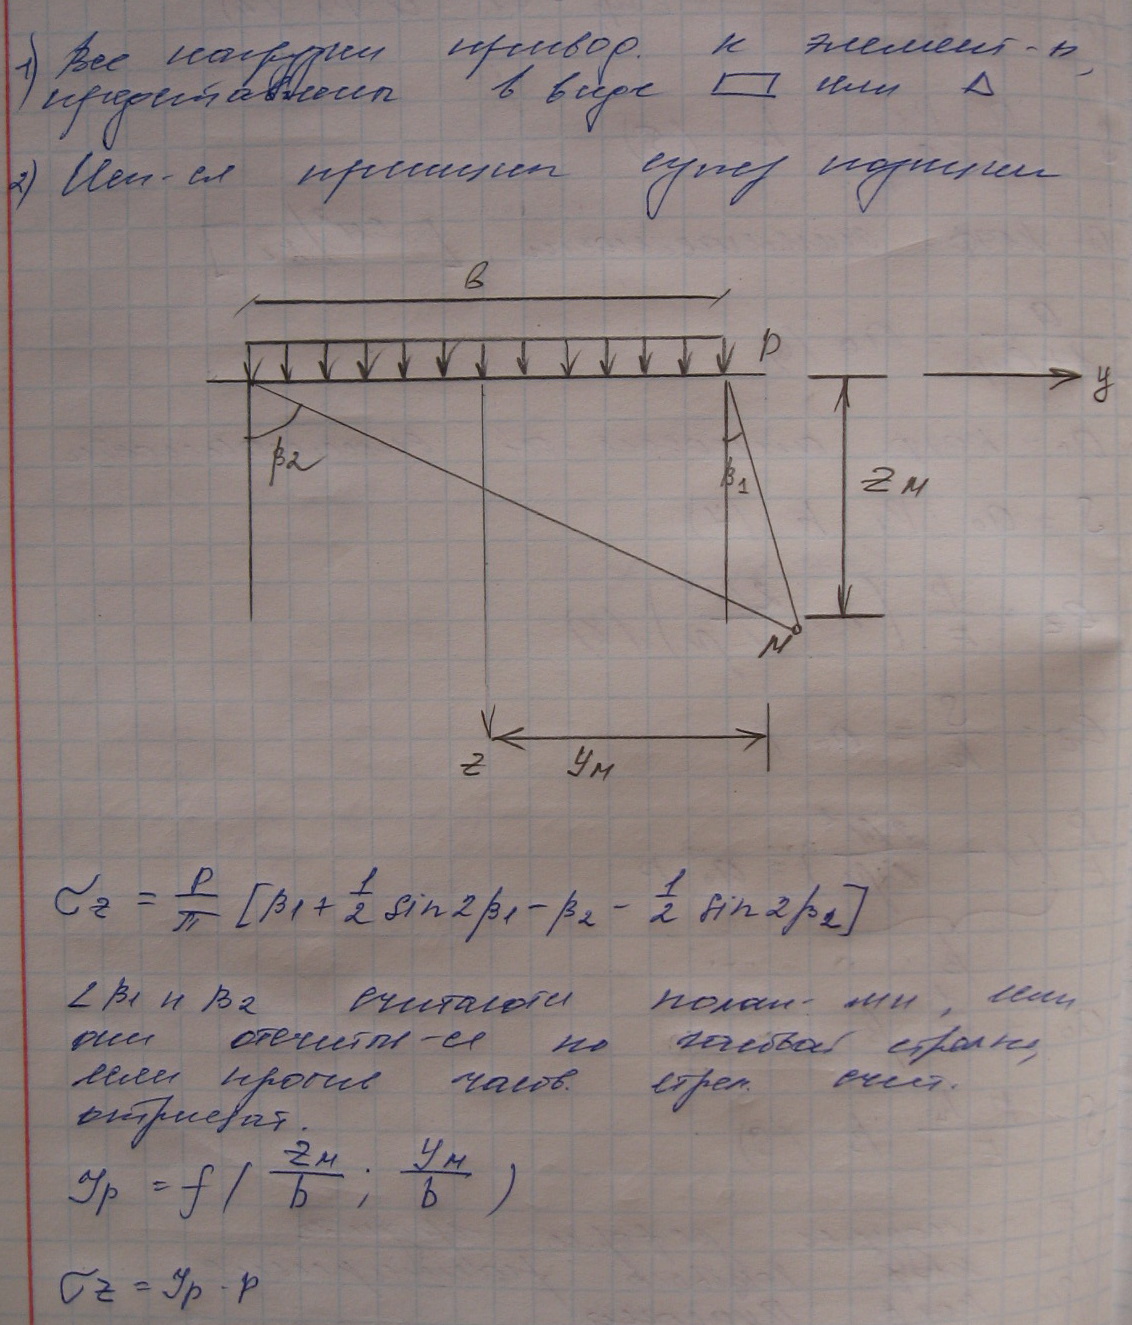 1) Все нагрузки привод. к элемент-м,
представлены в виде ▭ или △
2) Исп-ся принцип супер позиции
в
р
y
β2
β1
Zм
M
z
yм
σz = p/π [β1 + 1/2 sin 2β1 - β2 - 1/2 sin 2β2]
∠β1 и β2 считаются полож-ми, если
они отсчиты-ся по часовой стрелке,
если против часов. стрел. счит.
отрицат.
Jp = f ( Zм/b ; yм/b )
σz = Jp · p